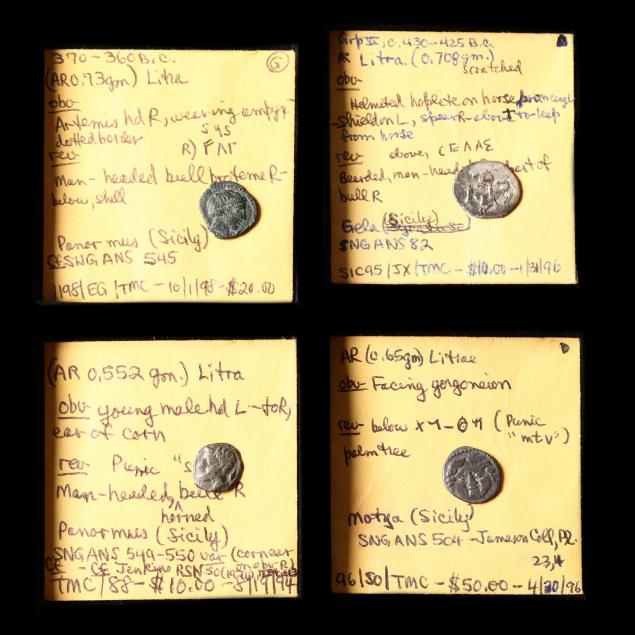 370-360 B.C. G
(AR 0.73gm) Litra
obv
Artemis hd R, wearing
dotted border
rev
Man-headed bull R-
below, shell
Panormus (Sicily)
SNG ANS 545
1198/EG/TMC - 10/1/98 - $20.00
Grp II, c. 430-425 B.C.
R Litra (0.708gm.)
scratched
obv
Helmeted hoplite on horse
shield on L, spear R-about to leap
from horse
rev above,
Bearded, man-head part of
bull R
Gela (Sicily)
SNG ANS 82
SIC95/JX/TMC - $10.00 - 1/31/96
(AR 0.552 gm.) Litra
obv young male hd L - to R,
ear of corn
rev Punic "s
Man-headed, bull R
horned
Panormus (Sicily)
SNG ANS 549-550 var (corn ear
CF Jenkins RSN 50
TMC/88 - $10.00 - 5/19/94
AR (0.65gm) Litrae
obv Facing gorgoneion
rev below (Punic
"mtv")
palm tree
Motya (Sicily)
SNG ANS 504 - Jameson Coll, Pl.
23,4
96/50/TMC - $50.00 - 4/20/96